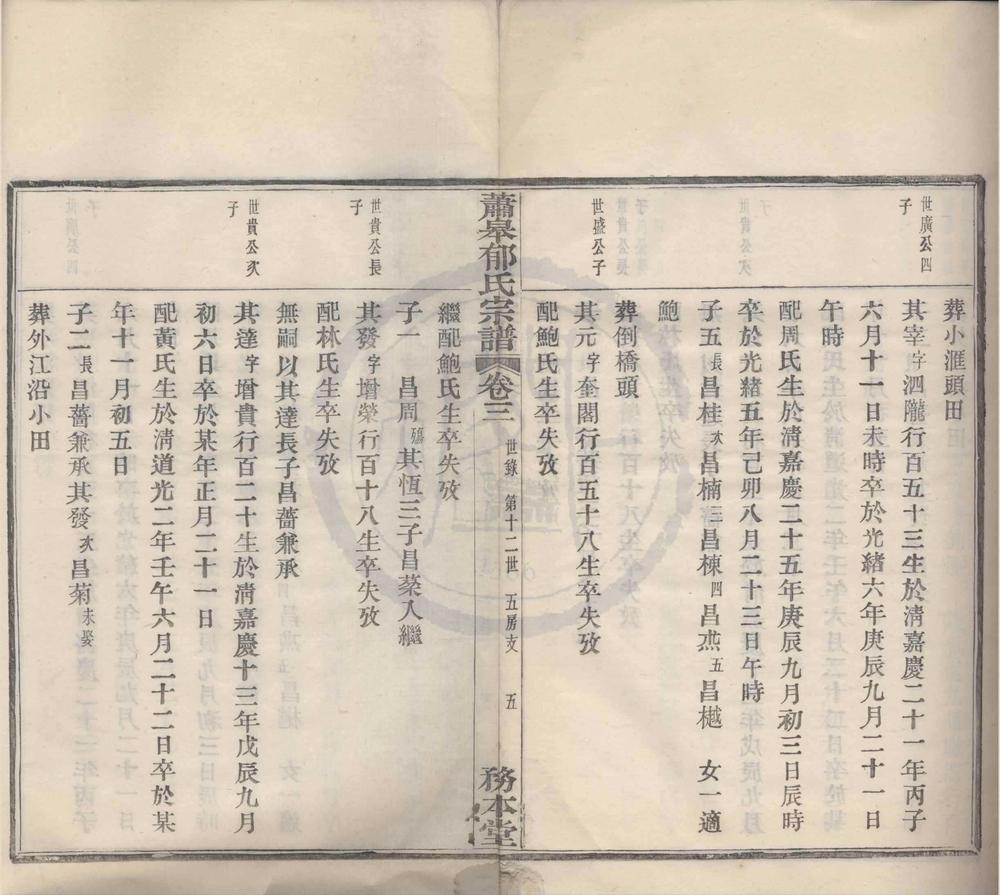 葬小滙頭田
世廣公四子
其宰字泗隴行百五十三生於淸嘉慶二十一年丙子
六月十一日未時卒於光緖六年庚辰九月二十一日
午時
配周氏生於淸嘉慶二十五年庚辰九月初三日辰時
卒於光緖五年己卯八月二十三日午時
子五長昌桂次昌楠三昌棟四昌烝五昌樾　女一適
鮑
葬倒橋頭
世盛公子
其元字奎閣行百五十八生卒失攷
配鮑氏生卒失攷
蕭皋郁氏宗譜　卷三　世錄　第十二世　五房支　五　務本堂
繼配鮑氏生卒失攷
子一　昌周殤其恆三子昌棻入繼
世貴公長子
其發字增榮行百十八生卒失攷
配林氏生卒失攷
無嗣以其達長子昌薔兼承
世貴公次子
其達字增貴行百二十生於淸嘉慶十三年戊辰九月
初六日卒於某年正月二十一日
配黃氏生於淸道光二年壬午六月二十二日卒於某
年十一月初五日
子二長昌薔兼承其發次昌菊未娶
葬外江沿小田